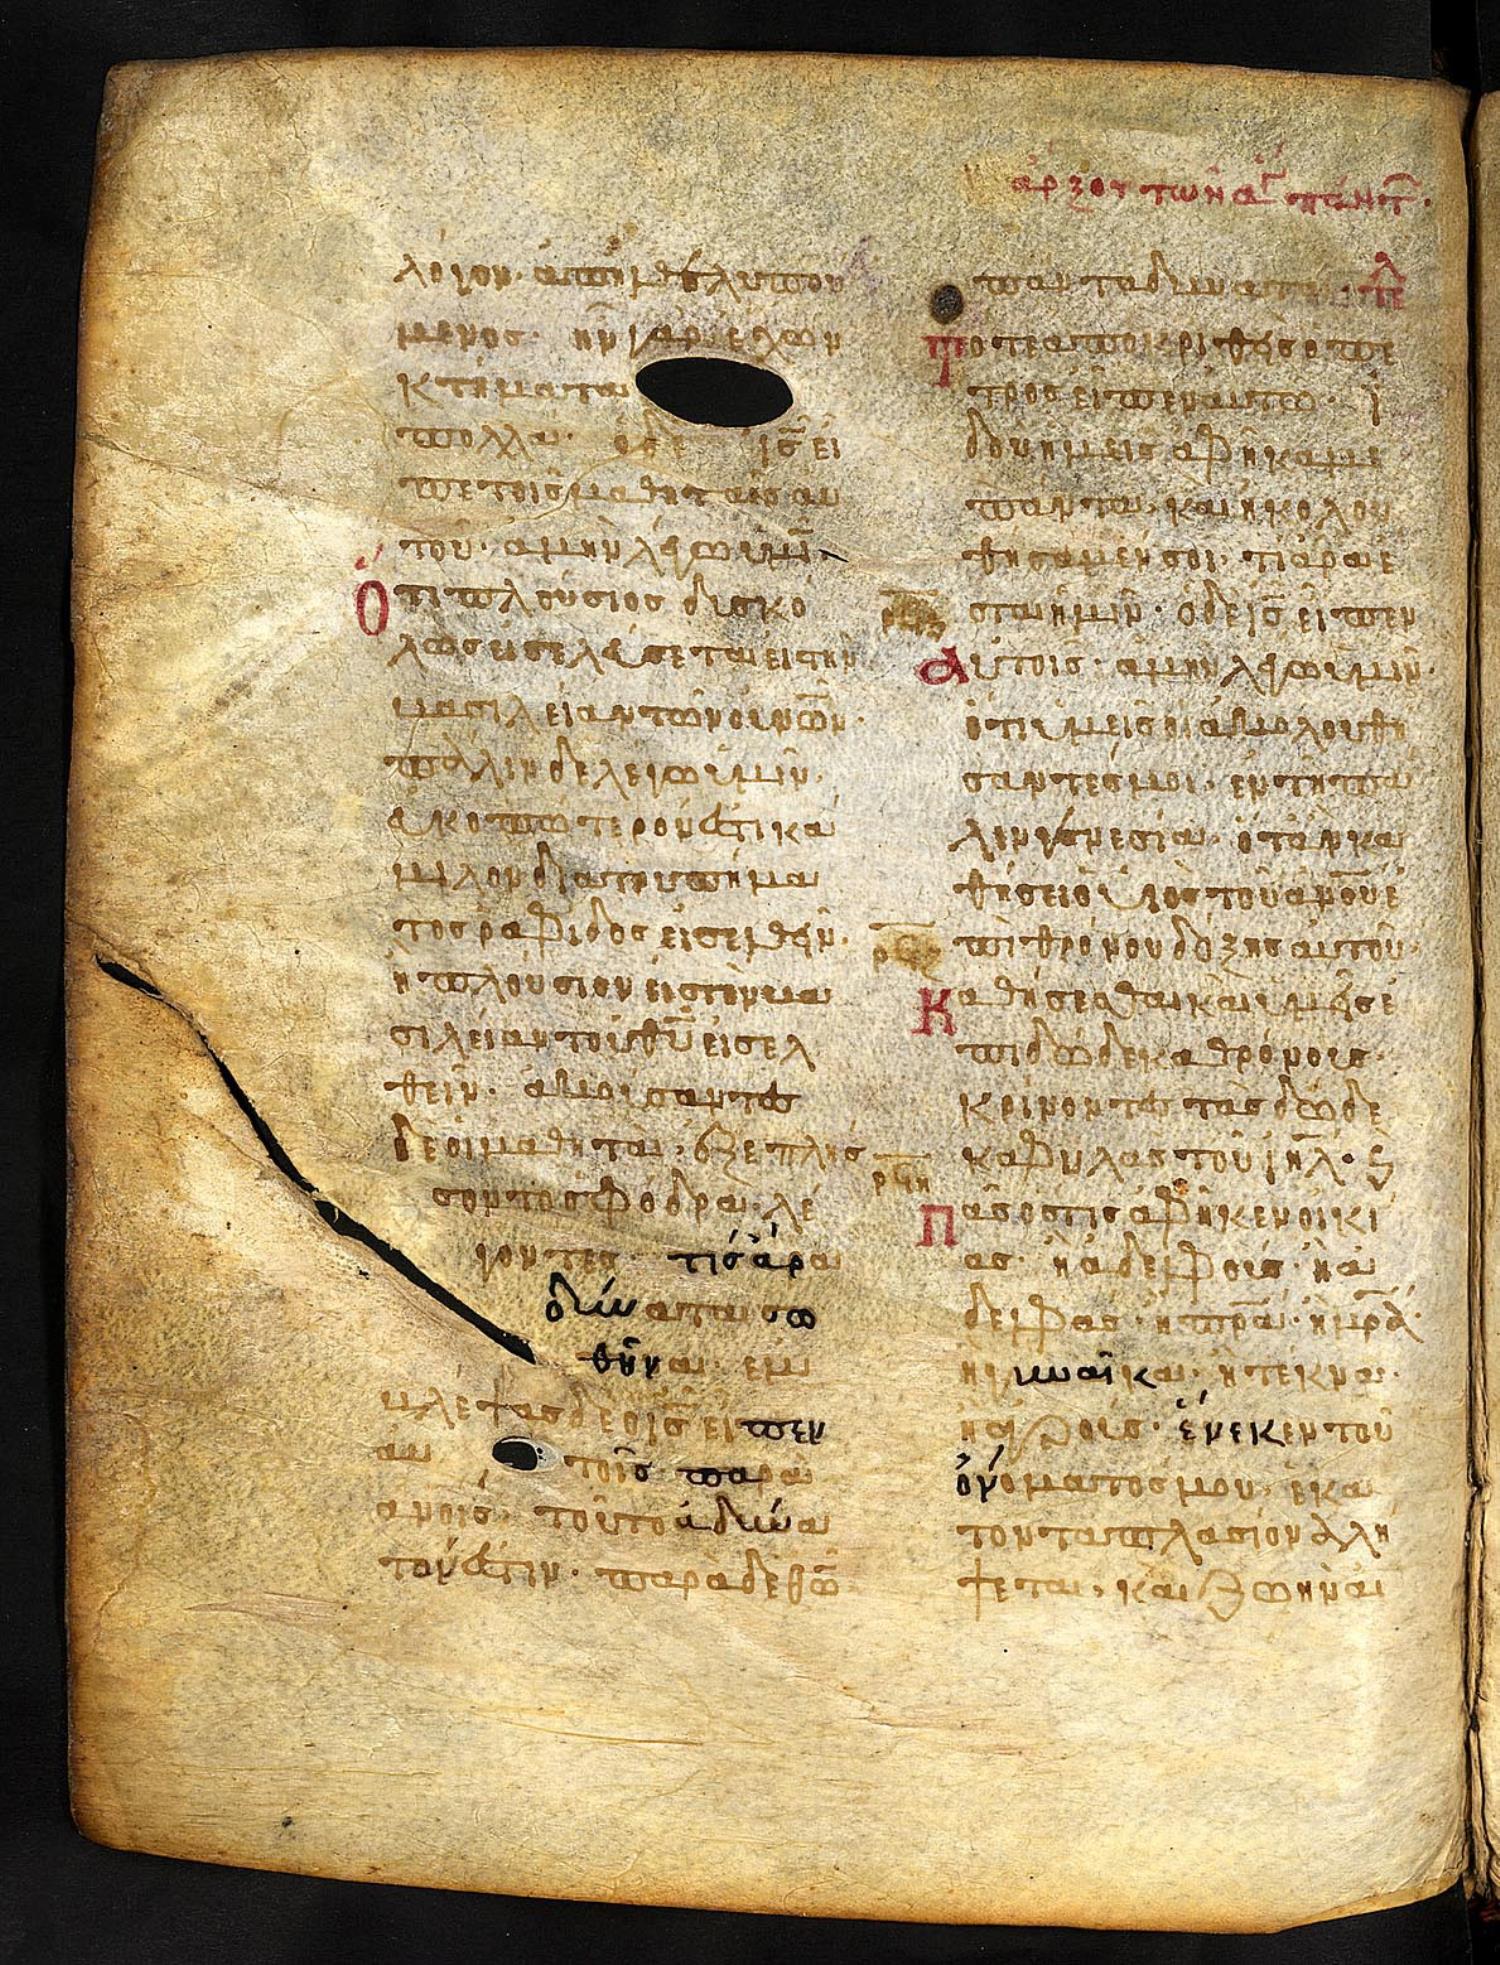 ἀρχου των ἁγ πάντ.
λόγον· ἀπῆλθε λυπού
μενος· ἦν γὰρ ἔχων
κτήματα
πολλά· ὁ δὲ ις̅ εἶ
πε τοῖς μαθηταῖς αυ
τοῦ· ἀμὴν λέγω ὑμῖ̅
ὅτι πλούσιος δυσκό
λως εἰσελεύσεται εἰς τὴν
βασιλείαν τῶν οὐνῶ̅ν·
πάλιν δὲ λέγω ὑμῖν·
εὐκοπώτερόν ἐστι κά
μιλον διὰ τρυπήμα
τος ραφίδος εἰσελθεῖν·
ἢ πλούσιον εἰς τὴν βα
σιλείαν τοῦ θυ̅ εἰσελ
θεῖν· ἀκούσαντες
δὲ οἱ μαθηταὶ, ἐξεπλήσ
σοντο σφόδρα· λέ
γοντες· τίς ἄρα
δύναται σω
θῆναι· ἐμ
βλέψας δὲ ὁ ις̅ εἶπεν
αυ τοῖς παρὰ
ἀνοις̅· τοῦτο ἀδύνα
τόν ἐστιν· παρὰ δὲ θω̅
πάντα δυνατά· τε̅λ
Τότε ἀποκριθεὶς ὁ πέ
τρος εἶπεν αὐτῶ· ἰ
δοὺ ἡμεῖς ἀφήκαμε
πάντα, καὶ ἠκολου
θήσαμέν σοι· τί ἄρα ἔ
σται ἡμῖν· ὁ δὲ ις̅ εἶπεν
Αὐτοῖς· ἀμὴν λέγω ὑμῖν·
ὅτι ὑμεῖς οἱ ἀκολουθή
σαντές μοι· ἐν τῆ πα
λινγενεσία· ὅταν κα
θήσει ὁ υἱὸς τοῦ ἀνου̅ ἐ
πὶ θρόνου δόξης αὐτοῦ·
Καθήσεσθαι καὶ ὑμεῖς ἐ
πὶ δώδεκα θρόνοις·
κρίνοντες τὰς δώδε
κα φυλὰς τοῦ ιηλ̅· ϛ
Πᾶς ὅστις ἀφῆκεν οἰκί
ας· ἢ ἀδελφοὺς· ἢ ἀ
δελφὰς· ἢ πρα̅· ἢ μρα̅·
ἢ γυναῖκα· ἢ τέκνα·
ἢ ἀγροὺς· ἕνεκεν τοῦ
ὀνόματός μου· ἑκα
τονταπλασίονα λή
ψεται, καὶ ζωὴν αἰ